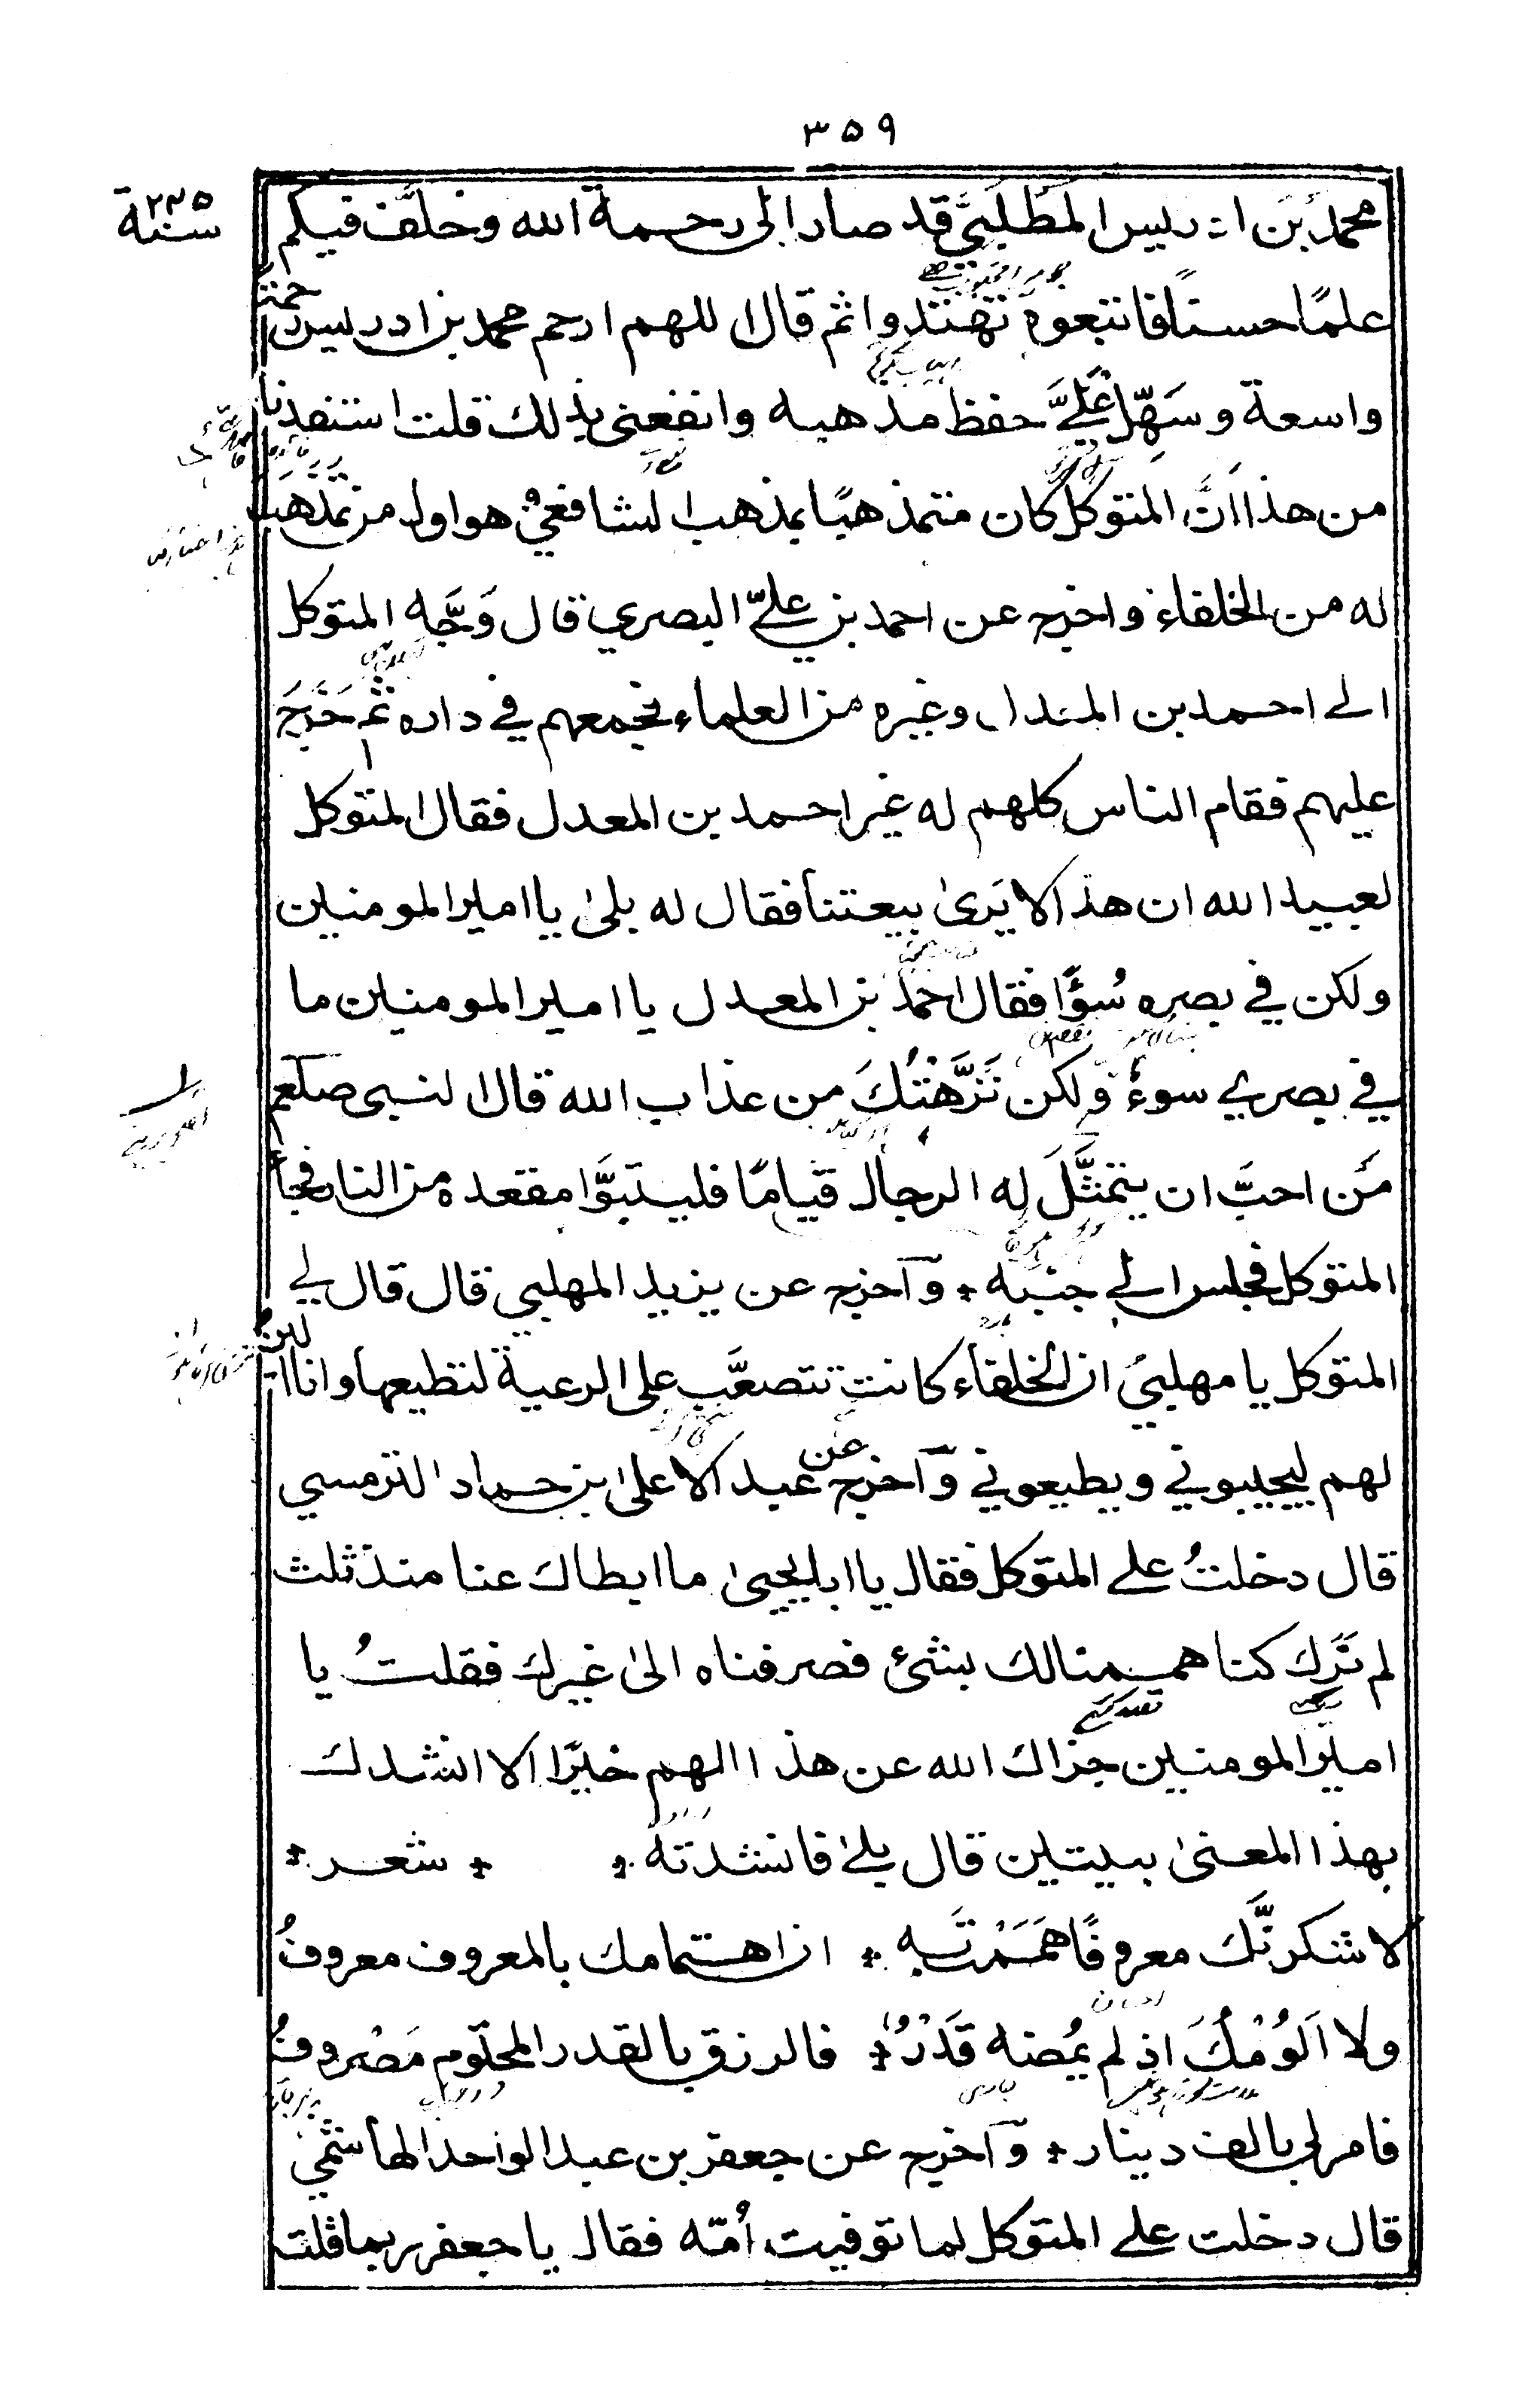 ٣٥٩
سنة ٢٣٥
محمد بن ادريس المطلبيّ قد صار الى رحمة الله وخلَّف فيكم
علمًا حسنًا فاتبعوه تهتدوا ثم قال اللهم ارحم محمد بن ادريس رحمةً
واسعة وسَهِّل عَلَيَّ حفظ مذهبه وانفعنى بذلك قلت استفدنا
من هذا اَنَّ المتوكل كان متمذهبًا بمذهب الشافعي وهو اول من تَمَذْهَبَ
له من الخلفاء واخرج عن احمد بن عليّ البصري قال وَجَّه المتوكل
الے احمد بن المعدل وغيره من العلماء فجمعهم في داره ثم خَرَجَ
عليهم فقام الناس كلهم له غير احمد بن المعدل فقال المتوكل
لعبيد الله ان هذا لا يَرىٰ بيعتنا فقال له بلىٰ يا امير المومنين
ولكن في بصره سُوْءًا فقال احمد بن المعدل يا امير المومنين ما
في بصري سوءٌ ولكن نَزَّهْتُكَ من عذاب الله قال النبى صلعم
مَن احبَّ ان يتمثَّلَ له الرجال قيامًا فليتبوَّا مقعده من النار فجاء
المتوكل فجلس الے جنبه ؞ وآخرج عن يزيد المهلبي قال قال لے
المتوكل يا مهلبيّ ان الخلفاء كانت تتصعَّب على الرعية لتطيعها وانا الين
لهم ليحيبوني ويطيعوني وآخرج عن عبد الاعلىٰ بن حماد النرمسي
قال دخلتُ علے المتوكل فقال يا ابا يحيىٰ ما ابطاك عنا منذ ثلث
لم نَرَك كنا هممنا لك بشئ فصرفناه الىٰ غيرك فقلتُ يا
امير المومنين جزاك الله عن هذا الهم خيرًا الا انشدك
بهذا المعنىٰ بيتين قال بلےٰ فانشدته ؞ ؞ شعر ؞
لاشكرنَّك معروفًا هَمَمْتَ به ؞ ان اهتمامك بالمعروف معروفُ
ولا اَلُوْمُكَ اذ لم يُمضه قَدَرٌ ؞ فالرزق بالقدر المحتوم مَصْروفُ
فامر لي بالف دينار ؞ وآخرج عن جعفر بن عبد الواحد الهاشمي
قال دخلت علے المتوكل لما توفيت اُمّه فقال يا جعفر ربما قلت